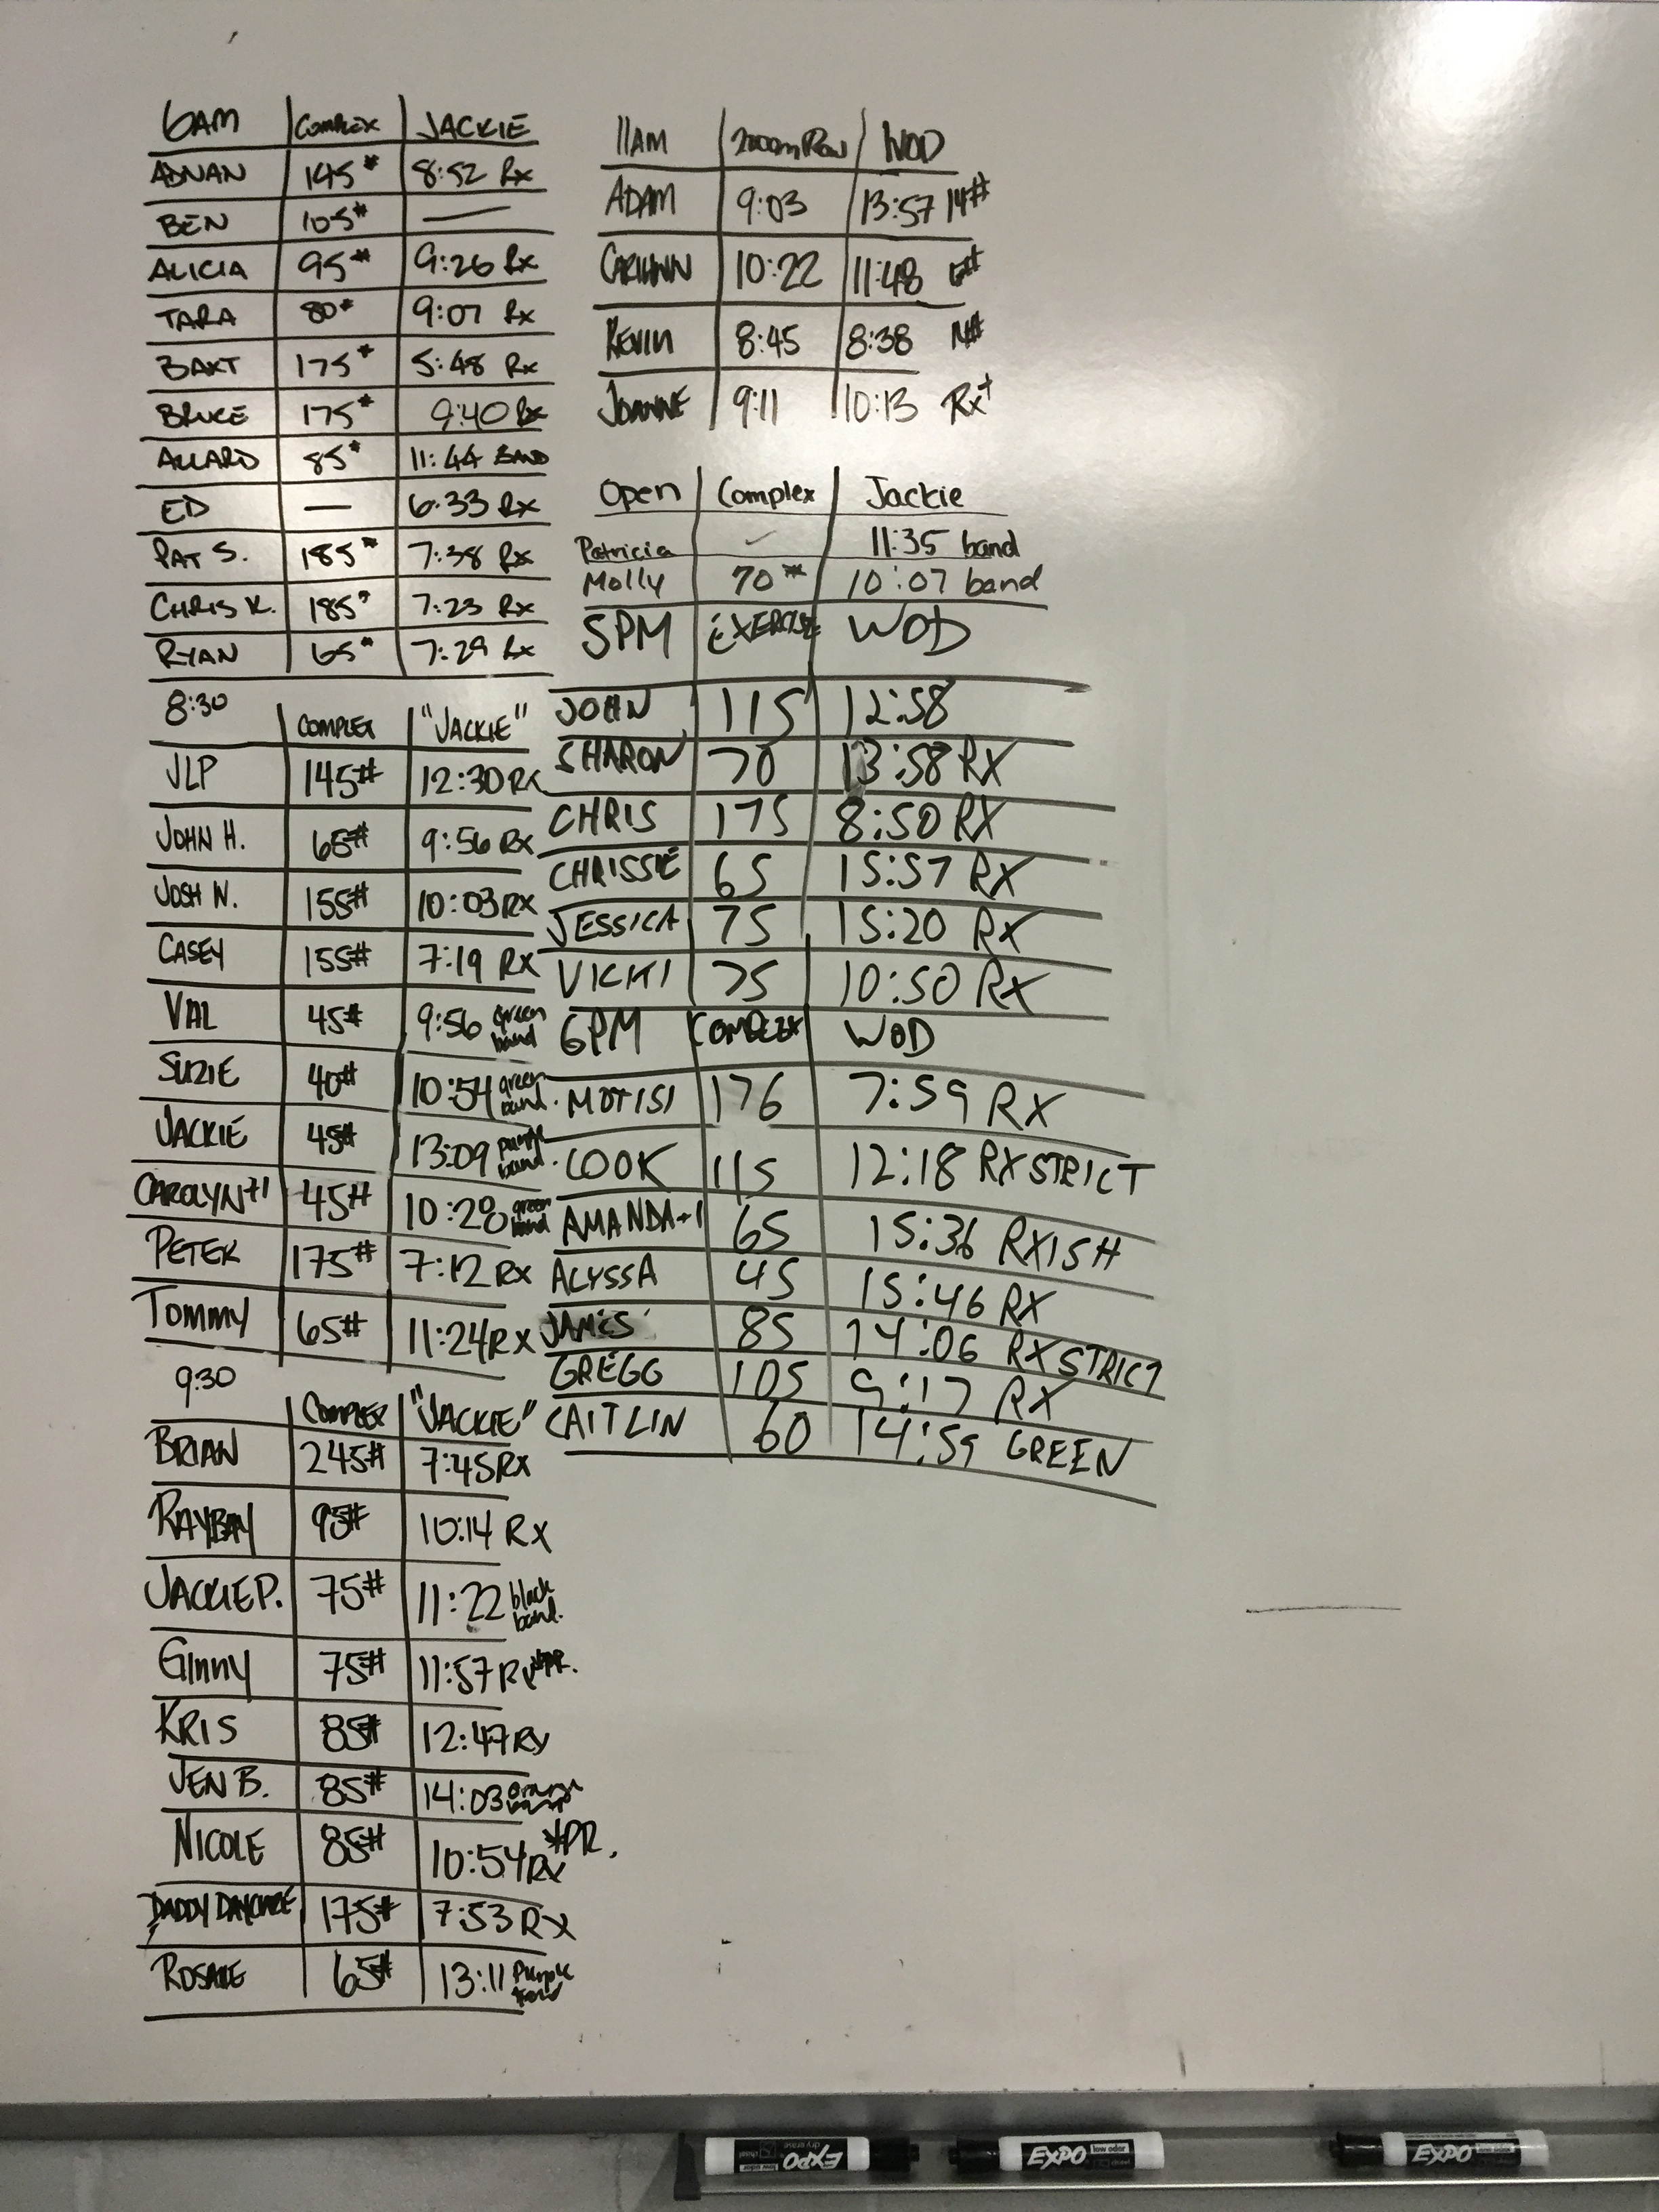 6AM COMPLEX JACKIE
ADNAN 145# 8:52 Rx
BEN 105# —
ALICIA 95# 9:26 Rx
TARA 80# 9:07 Rx
BAXT 175# 5:48 Rx
BRUCE 175# 9:40 Rx
ALLARD 85# 11:44 BAND
ED — 6:33 Rx
PAT S. 185# 7:38 Rx
CHRIS K. 185# 7:23 Rx
RYAN 65# 7:29 Rx
8:30 COMPLEX "JACKIE"
JLP 145# 12:30 RX
JOHN H. 65# 9:56 RX
JOSH N. 155# 10:03 RX
CASEY 155# 7:19 RX
VAL 45# 9:56 green band
SUZIE 40# 10:54 green band.
JACKIE 45# 13:09 purple band.
CAROLYN+1 45# 10:28 green band
PETER 175# 7:12 RX
TOMMY 65# 11:24 RX
9:30 COMPLEX "JACKIE"
BRIAN 245# 7:45 RX
RAYBAY 95# 10:14 RX
JACKIE P. 75# 11:22 black band.
GINNY 75# 11:57 RX *PR.
KRIS 85# 12:47 RX
JEN B. 85# 14:03 orange
NICOLE 85# 10:54 RX *PR.
DADDY DAYCARE 175# 7:53 RX
ROSALIE 65# 13:11 Purple band
11AM 2000m Row WOD
ADAM 9:03 13:57 14#
CARILYNN 10:22 11:48
KEVIN 8:45 8:38 14#
JOANNE 9:11 10:13 Rx+
Open Complex Jackie
Patricia ✓ 11:35 band
Molly 70# 10:07 band
5PM EXERCISE WOD
JOHN 115 12:58
SHARON 70 13:58 RX
CHRIS 175 8:50 RX
CHRISSIE 65 15:57 RX
JESSICA 75 15:20 RX
VICKI 75 10:50 RX
6PM COMPLEX WOD
MOTISI 176 7:59 RX
COOK 115 12:18 RX STRICT
AMANDA+1 65 15:36 RXISH
ALYSSA 45 15:46 RX
JAMES 85 14:06 RX STRICT
GREGG 105 9:17 RX
CAITLIN 60 14:59 GREEN
EXPO low odor dry erase
EXPO low odor
EXPO